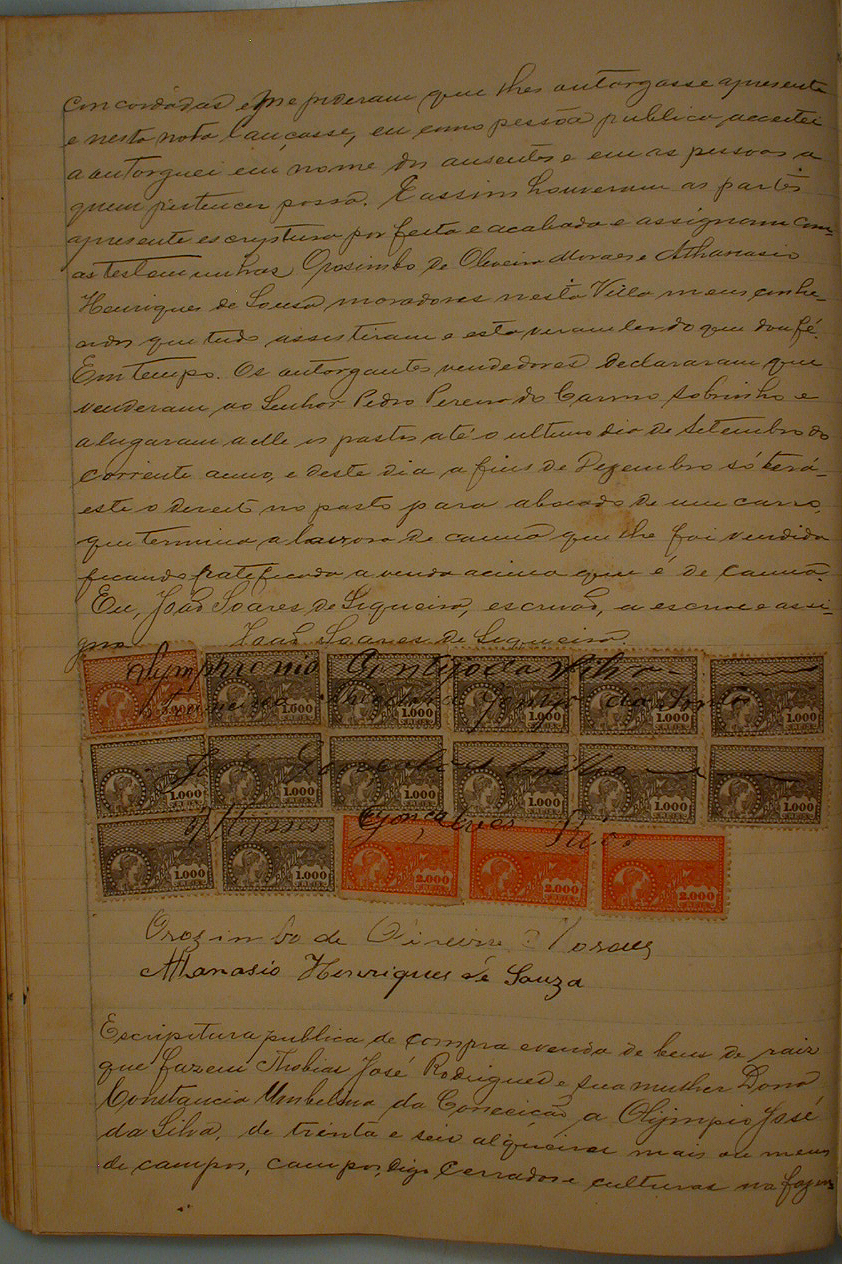 concordadas e me pederam que lhes outorgasse apresente
e nesta nota lançasse, eu como pessôa publica acceitei
a outorguei em nome dos ausentes e em as pessoas a
quem pertencer possa. E assim houveram as partes
apresente escryptura por feita e acabada e assignam com
as testemunhas Orosimbo de Oliveira Moraes e Athanasio
Henriques de Sousa moradores nesta Villa meus conhe-
cidos que tudo assistiram e esta veram ler do que dou fé.
Em tempo. Os outorgantes vendedores declararam que
venderam ao Senhor Pedro Pereira do Carmo Sobrinho e
alugaram a elle os pastos até o ultimo dia de Setembro do
corrente anno, e deste dia a fins de Dezembro só terá
este o direito no pasto para de um carro,
que termina a lavora de canna que lhe foi vendida
ficando ratificada a venda acima que é de canna.
Eu, João Soares de Siqueira, escrivão, a escrevi e assi-
gno João Soares de Siqueira.
Olymphronio Filho
Francisca Theodora dos Santos
1.000 1.000 1.000 1.000 1.000
José Carvalho
1.000 1.000 1.000 1.000 1.000 1.000
Gonçalves
1.000 1.000 2.000 2.000 2.000
REIS REIS REIS
Orozimbo de Oliveira Moraes
Athanasio Henriques de Souza
Escripitura publica de compra e venda de bens de raiz
que fazem Thobias José Rodrigues e sua mulher Dona
Constancia Umbelina da Conceição a Olijmpio José
da Silva, de trinta e seis alqueires mais ou menos
de campos, campos, digo cerrados e culturas na fazen